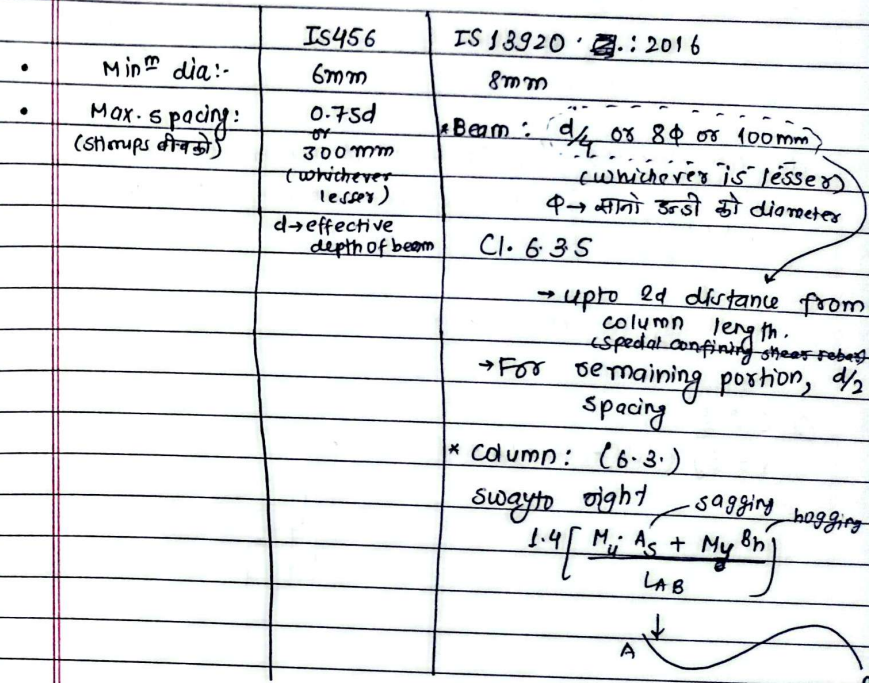 IS456 IS 13920 : 2016
• Minᵐ dia:- 6mm 8mm
• Max. spacing: 0.75d
(stirrups बीचको) or
300mm
(whichever
lesser)
d→effective
depth of beam
* Beam : d/4 or 8Φ or 100mm
(whichever is lesser)
Φ→ सानो डन्डी को diameter
Cl. 6.3.5
→ upto 2d distance from
column length.
(special confining shear rebar)
→ For remaining portion, d/2
spacing
* Column: (6.3.)
sway to right
sagging hogging
1.4 [ Mu As + Mu Bh ]
LAB
A